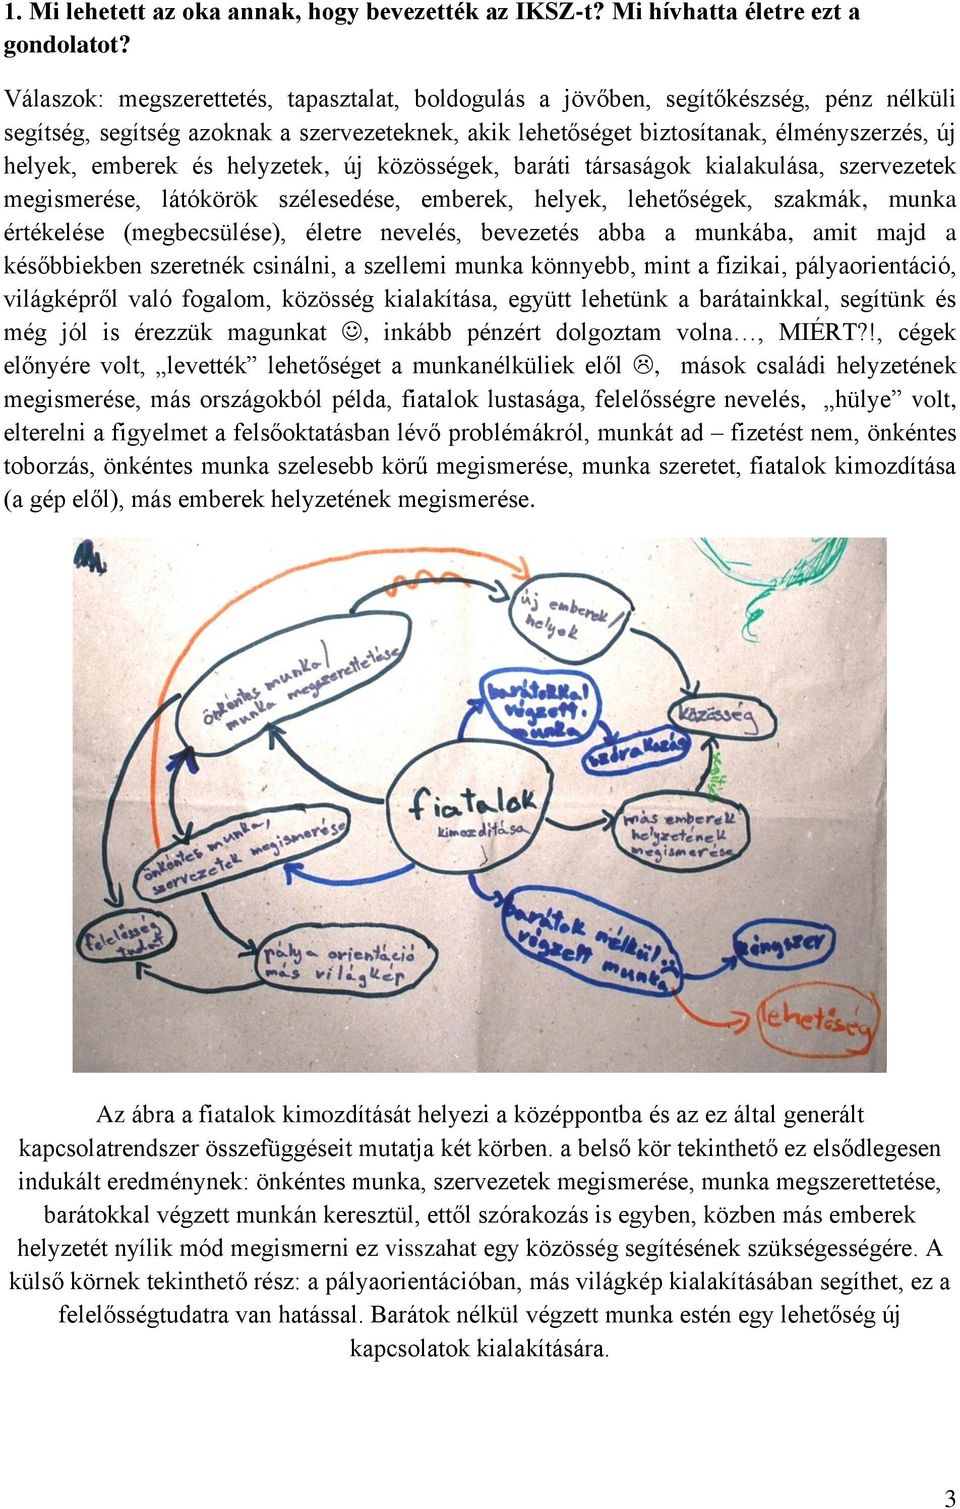 1. Mi lehetett az oka annak, hogy bevezették az IKSZ-t? Mi hívhatta életre ezt a
gondolatot?
Válaszok: megszerettetés, tapasztalat, boldogulás a jövőben, segítőkészség, pénz nélküli
segítség, segítség azoknak a szervezeteknek, akik lehetőséget biztosítanak, élményszerzés, új
helyek, emberek és helyzetek, új közösségek, baráti társaságok kialakulása, szervezetek
megismerése, látókörök szélesedése, emberek, helyek, lehetőségek, szakmák, munka
értékelése (megbecsülése), életre nevelés, bevezetés abba a munkába, amit majd a
későbbiekben szeretnék csinálni, a szellemi munka könnyebb, mint a fizikai, pályaorientáció,
világképről való fogalom, közösség kialakítása, együtt lehetünk a barátainkkal, segítünk és
még jól is érezzük magunkat ☺, inkább pénzért dolgoztam volna…, MIÉRT?!, cégek
előnyére volt, „levették” lehetőséget a munkanélküliek elől ☹, mások családi helyzetének
megismerése, más országokból példa, fiatalok lustasága, felelősségre nevelés, „hülye” volt,
elterelni a figyelmet a felsőoktatásban lévő problémákról, munkát ad – fizetést nem, önkéntes
toborzás, önkéntes munka szelesebb körű megismerése, munka szeretet, fiatalok kimozdítása
(a gép elől), más emberek helyzetének megismerése.
új emberek/
helyek
önkéntes munka/
munka megszerettetése
barátokkal
végzett
munka
közösség
szórakozás
segítség
fiatalok
kimozdítása
más emberek
helyzetének
megismerése
önkéntes munka,
szervezetek megismerése
felelősség
tudat
pálya orientáció
más világkép
barátok nélkül
végzett
munka
kényszer
lehetőség
Az ábra a fiatalok kimozdítását helyezi a középpontba és az ez által generált
kapcsolatrendszer összefüggéseit mutatja két körben. a belső kör tekinthető ez elsődlegesen
indukált eredménynek: önkéntes munka, szervezetek megismerése, munka megszerettetése,
barátokkal végzett munkán keresztül, ettől szórakozás is egyben, közben más emberek
helyzetét nyílik mód megismerni ez visszahat egy közösség segítésének szükségességére. A
külső körnek tekinthető rész: a pályaorientációban, más világkép kialakításában segíthet, ez a
felelősségtudatra van hatással. Barátok nélkül végzett munka estén egy lehetőség új
kapcsolatok kialakítására.
3